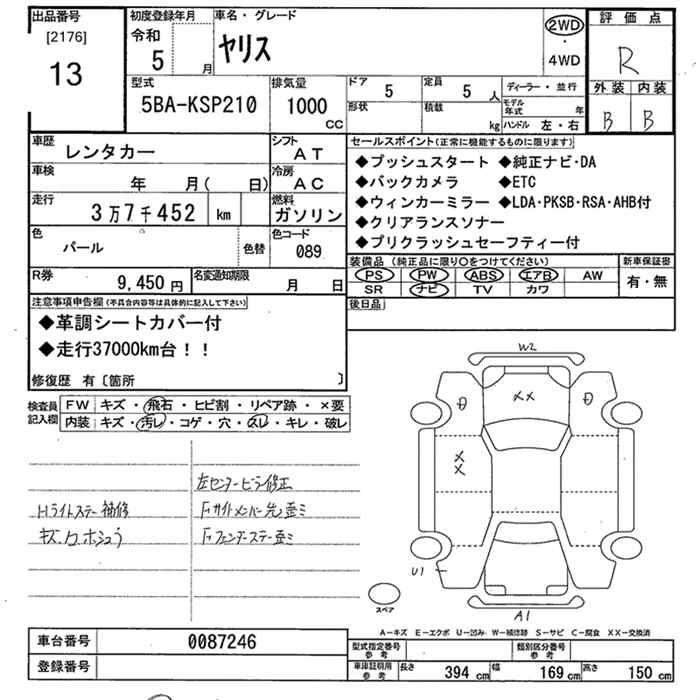 出品番号
[2176]
13
初度登録年月
令和
5
月
車名・グレード
ヤリス
2WD
・
4WD
評価点
R
外装 内装
B B
型式
5BA-KSP210
排気量
1000
CC
ドア
5
定員
5 人
形状
積載
kg
ディーラー・並行
モデル年式 年
ハンドル 左・右
車歴
レンタカー
シフト
AT
車検
年 月( 日)
冷房
AC
走行
3万7千452 km
燃料
ガソリン
色
パール
色替
色コード
089
R券
9,450 円
名変通知期限
月 日
セールスポイント(正常に機能するものに限ります)
◆プッシュスタート ◆純正ナビ・DA
◆バックカメラ ◆ETC
◆ウィンカーミラー ◆LDA・PKSB・RSA・AHB付
◆クリアランスソナー
◆プリクラッシュセーフティー付
装備品 (純正品に限り○をつけてください)
PS PW ABS エアB AW
SR ナビ TV カワ
新車保証書
有・無
後日品
注意事項申告欄(不具合内容等は具体的に記入して下さい)
◆革調シートカバー付
◆走行37000km台!!
修復歴 有〔箇所 〕
検査員記入欄
FW キズ・飛石・ヒビ割・リペア跡・×要
内装 キズ・汚レ・コゲ・穴・スレ・キレ・破レ
左センターピラー修正
Hライトステー補修 Frサイドメンバー先歪ミ
キズ、凹、ホシュウ Frフェンダーステー歪ミ
W2
××
××
U1
A1
スペア
A-キズ E-エクボ U-凹み W-補修跡 S-サビ C-腐食 XX-交換済
車台番号
0087246
登録番号
型式指定番号
参考
類別区分番号
参考
車庫証明用
参考
長さ 394 cm 幅 169 cm 高さ 150 cm